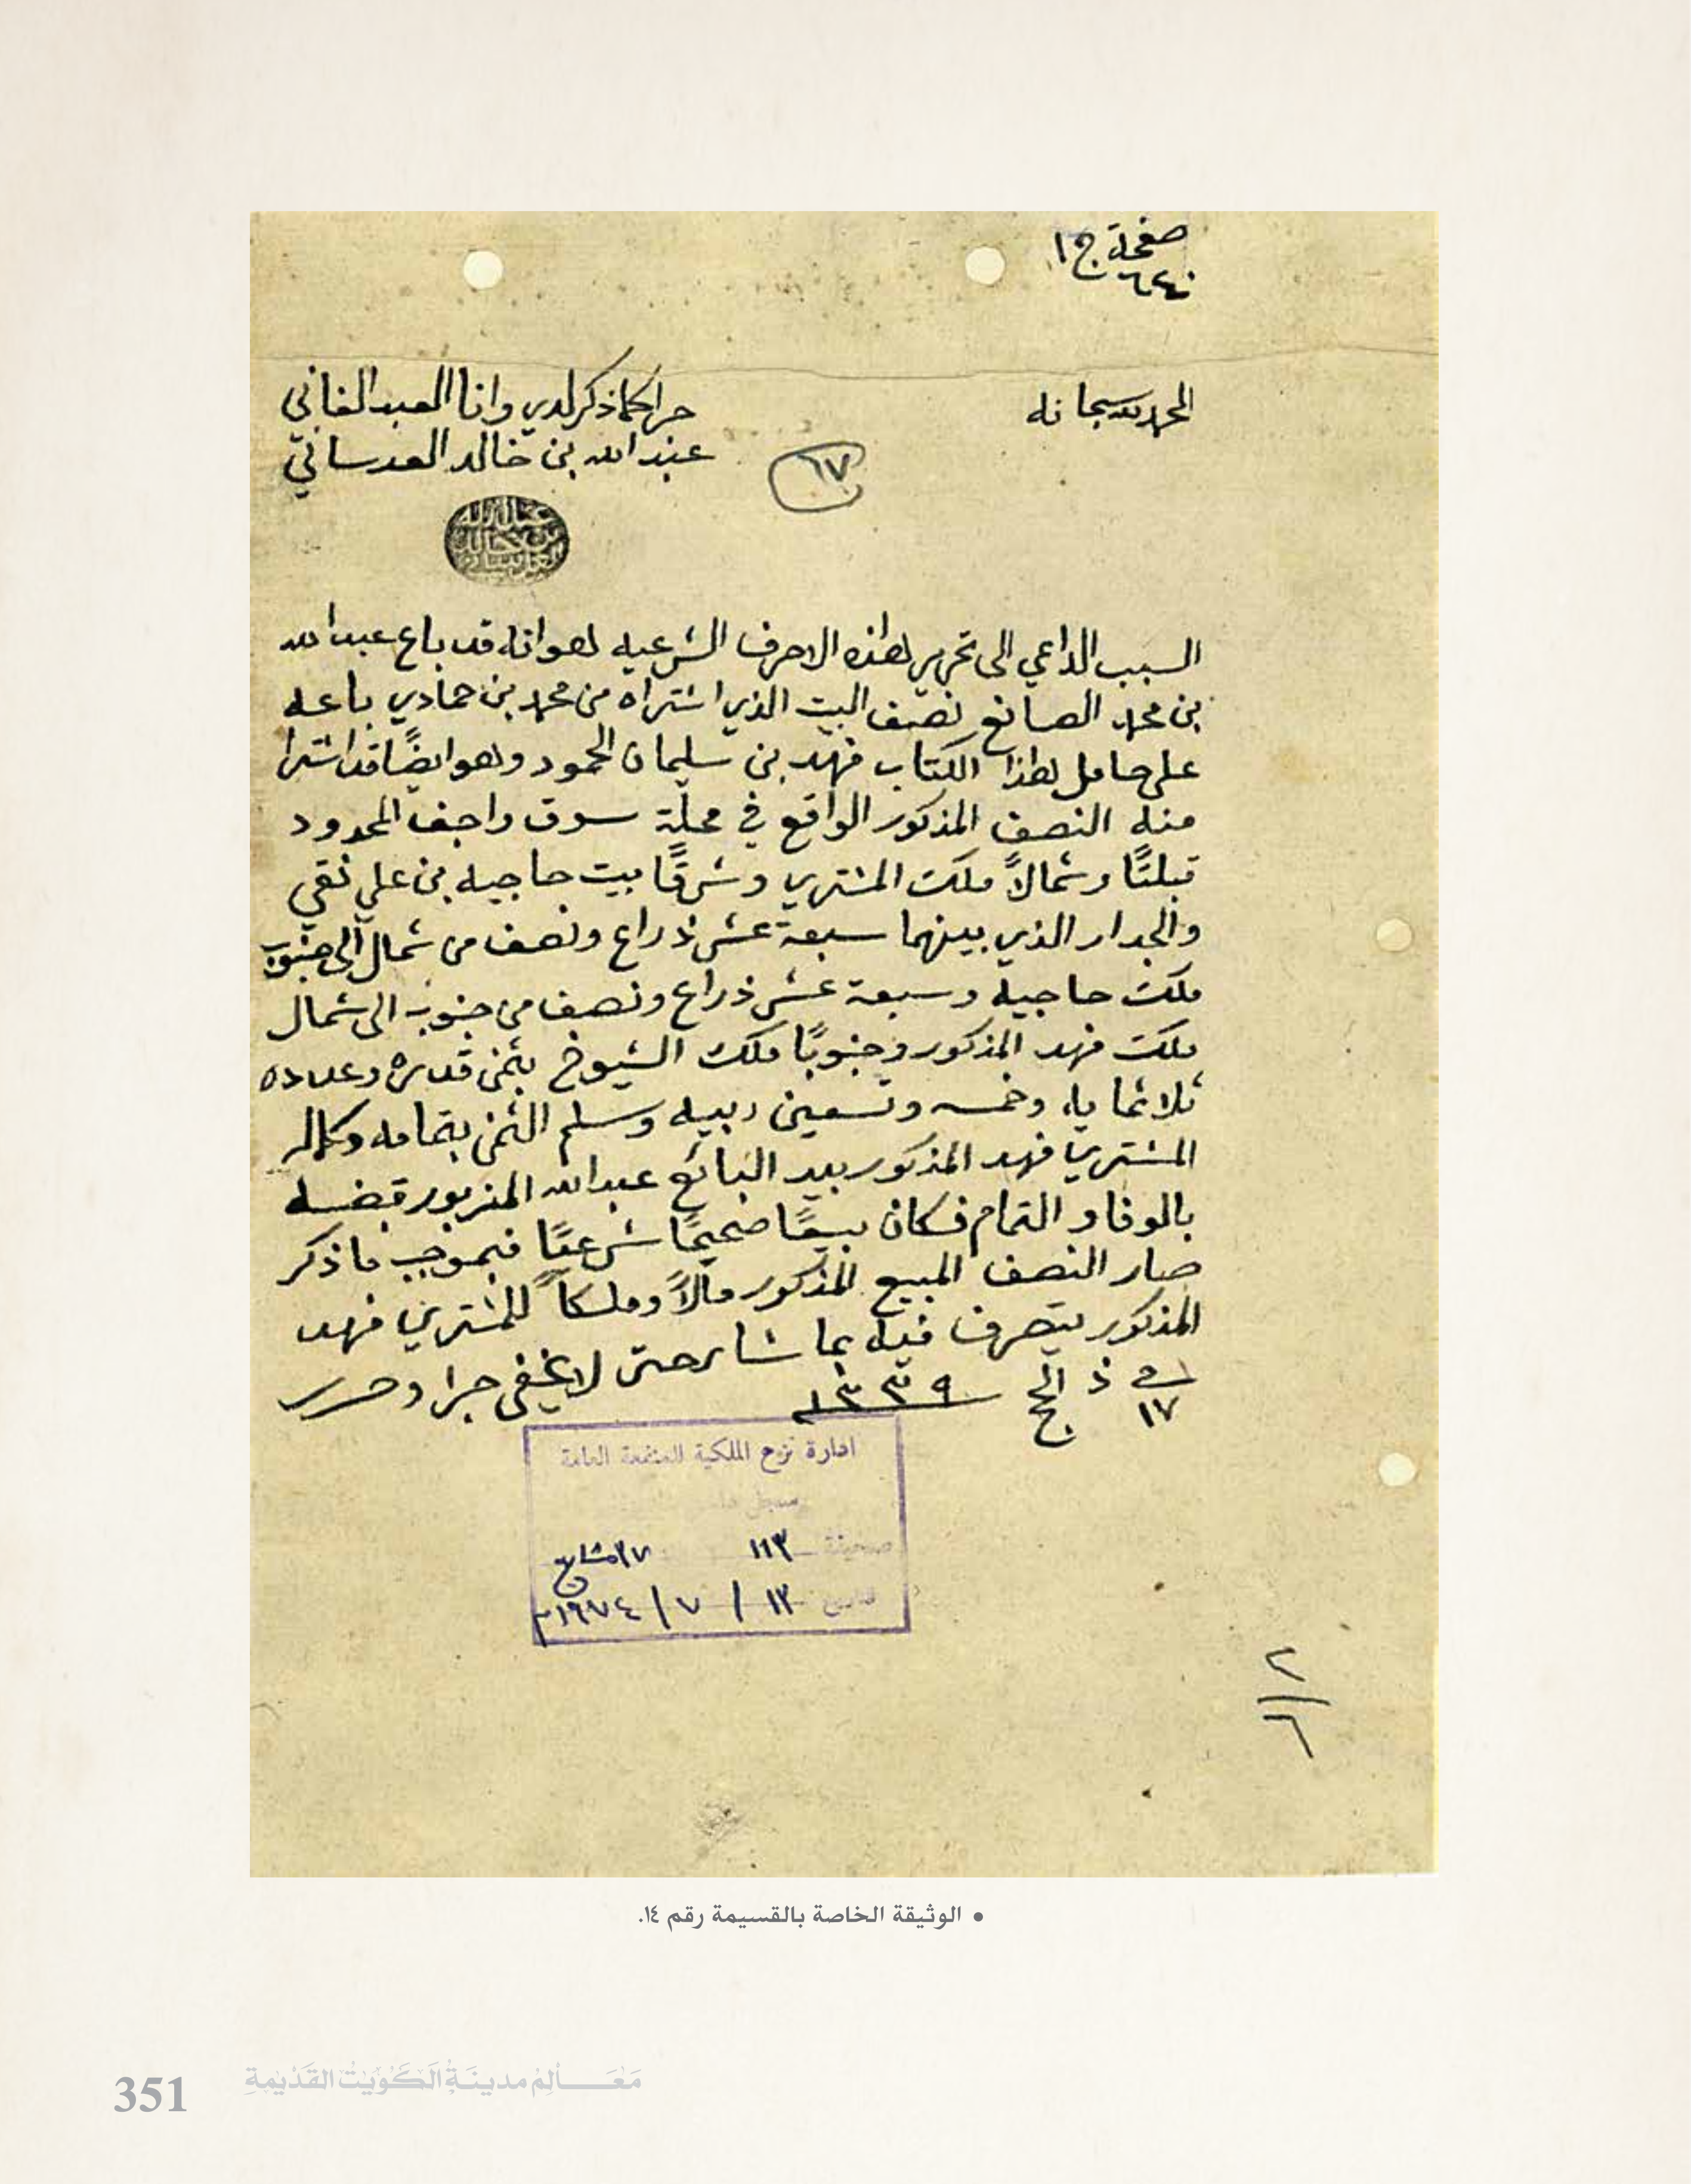 صفحة ج ١
٦٤٠
الحمد لله سبحانه
جرا كما ذكر لدي وانا العبد الفاني
عبدالله بن خالد العدساني
٦٧
عبدالله
بن خالد
العدساني
السبب الداعي الى تحرير هذه الاحرف الشرعيه هو انه قد باع عبدالله
بن محمد الصانع نصف البيت الذي اشتراه من محمد بن حمادي باعه
على حامل هذا الكتاب فهد بن سليمان الحمود وهو ايضًا قد اشترا
منه النصف المذكور الواقع في محلة سوق واجف المحدود
قبلتًا وشمالاً ملك المشتري وشرقًا بيت حاجيه بن علي نقي
والجدار الذي بينهما سبعة عشر ذراع ونصف من شمال الى جنوب
ملك حاجيه وسبعة عشر ذراع ونصف من جنوب الى شمال
ملك فهد المذكور وجنوبًا ملك الشيوخ بثمن قدره وعدده
ثلاثماية وخمسه وتسعين ربيه وسلم الثمن بتمامه وكماله
المشتري فهد المذكور بيد البائع عبدالله المزبور قبضه
بالوفا والتمام فكان بيعًا صحيحًا شرعيًا فبموجب ما ذكر
صار النصف المبيع المذكور مالاً وملكاً للمشتري فهد
المذكور يتصرف فيه بما شاء حتى لا يخفى جرا وحرر
في ١٧ ذ الحج ١٣٣٩
ادارة نزع الملكية للمنفعة العامة
سجل
صحيفة ١١٣ ٣٧
تاريخ ١٣ / ٧ / ١٩٧٤م
٢
• الوثيقة الخاصة بالقسيمة رقم ١٤.
351 مَعَـــالِمُ مدينَةِ الكُوَيْتِ القَدِيمَةِ